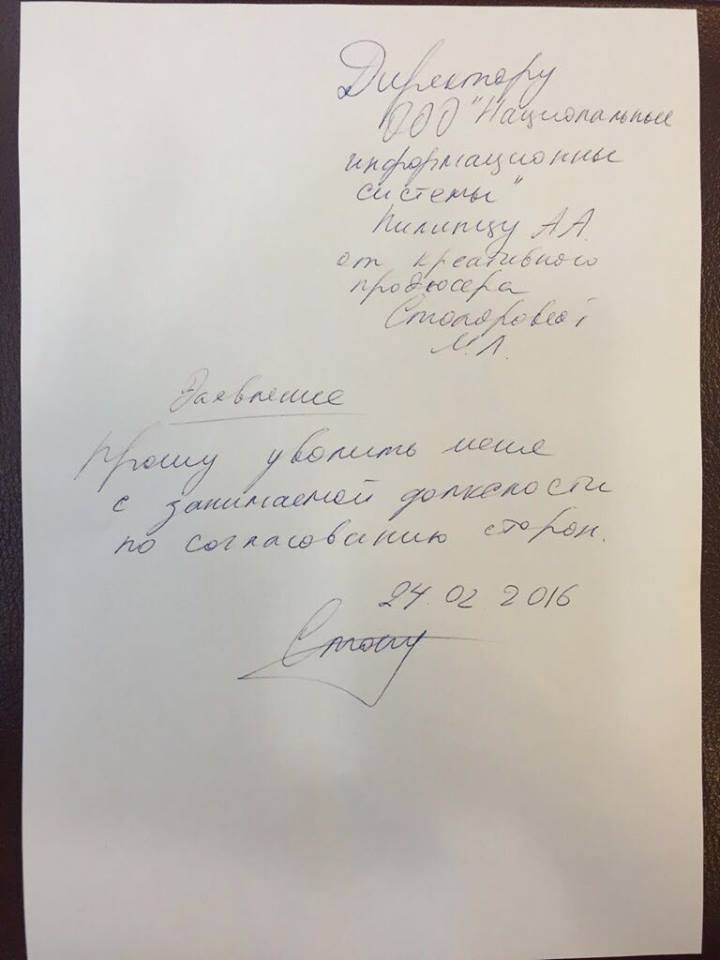 Директору
ООО "Национальные
информационны
системы"
Пилипцу А А.
от креативного
продюсера
Столяровой
М. Л.
Заявление
Прошу уволить меня
с занимаемой должности
по согласованию сторон.
24. 02 2016